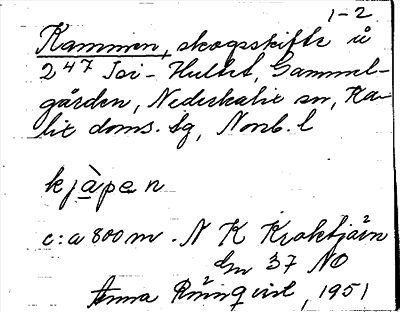 1-2
Kammen, skogsskifte å
2 47 Toi- Hultet, Gammel-
gården, Nederkalix sn, Ka-
lix doms. tg, Norrb. l
kjàpen
c:a 800 m. N K Kroktjärn
37 NO
Anna Rönnqvist, 1951